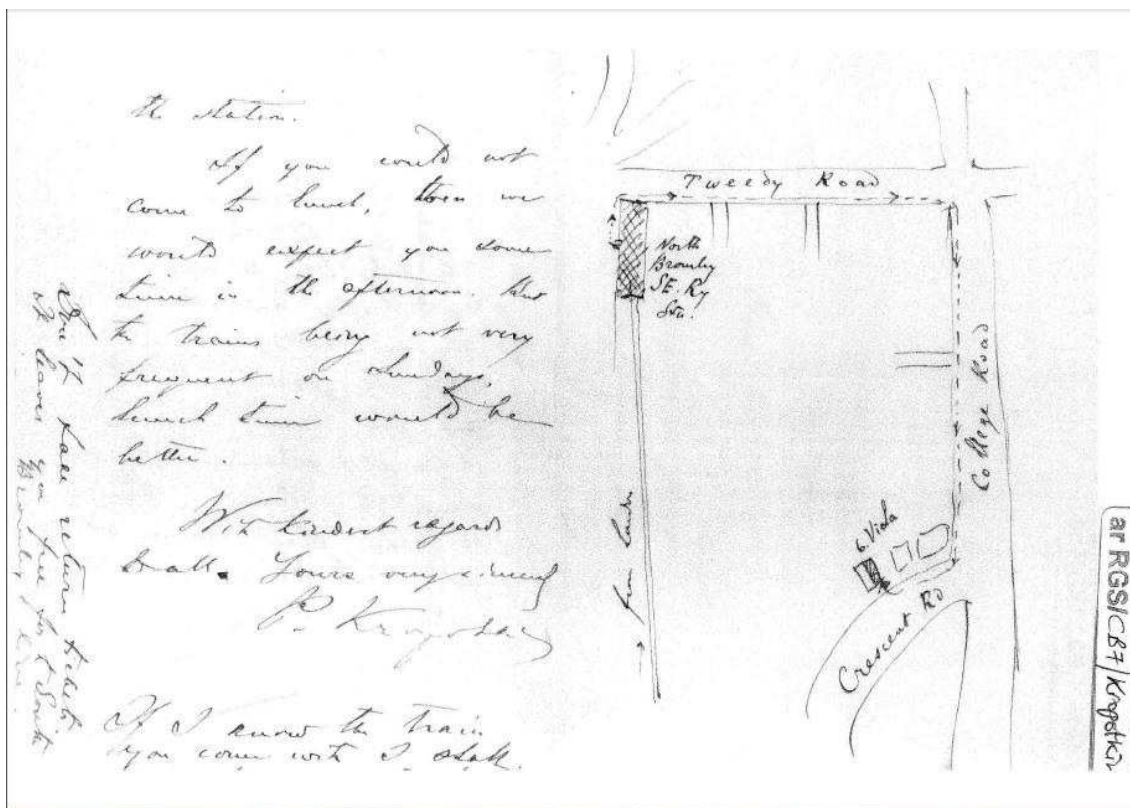 the station.
If you could not
come to lunch, then we
would expect you some
time in the afternoon. But
the trains being not very
frequent on Sundays,
lunch time would be
better.
With kindest regards
to all. Yours very sincerely
P. Kropotkin
If I know the train
you come with I shall
Don't take return tickets
It leaves you free for the South
Bromley Line
Tweedy Road
North
Bromley
S.E. Ry
Stn.
College Road
6. Viola
Crescent Rd
from London
ar RGS/CB7/Kropotkin